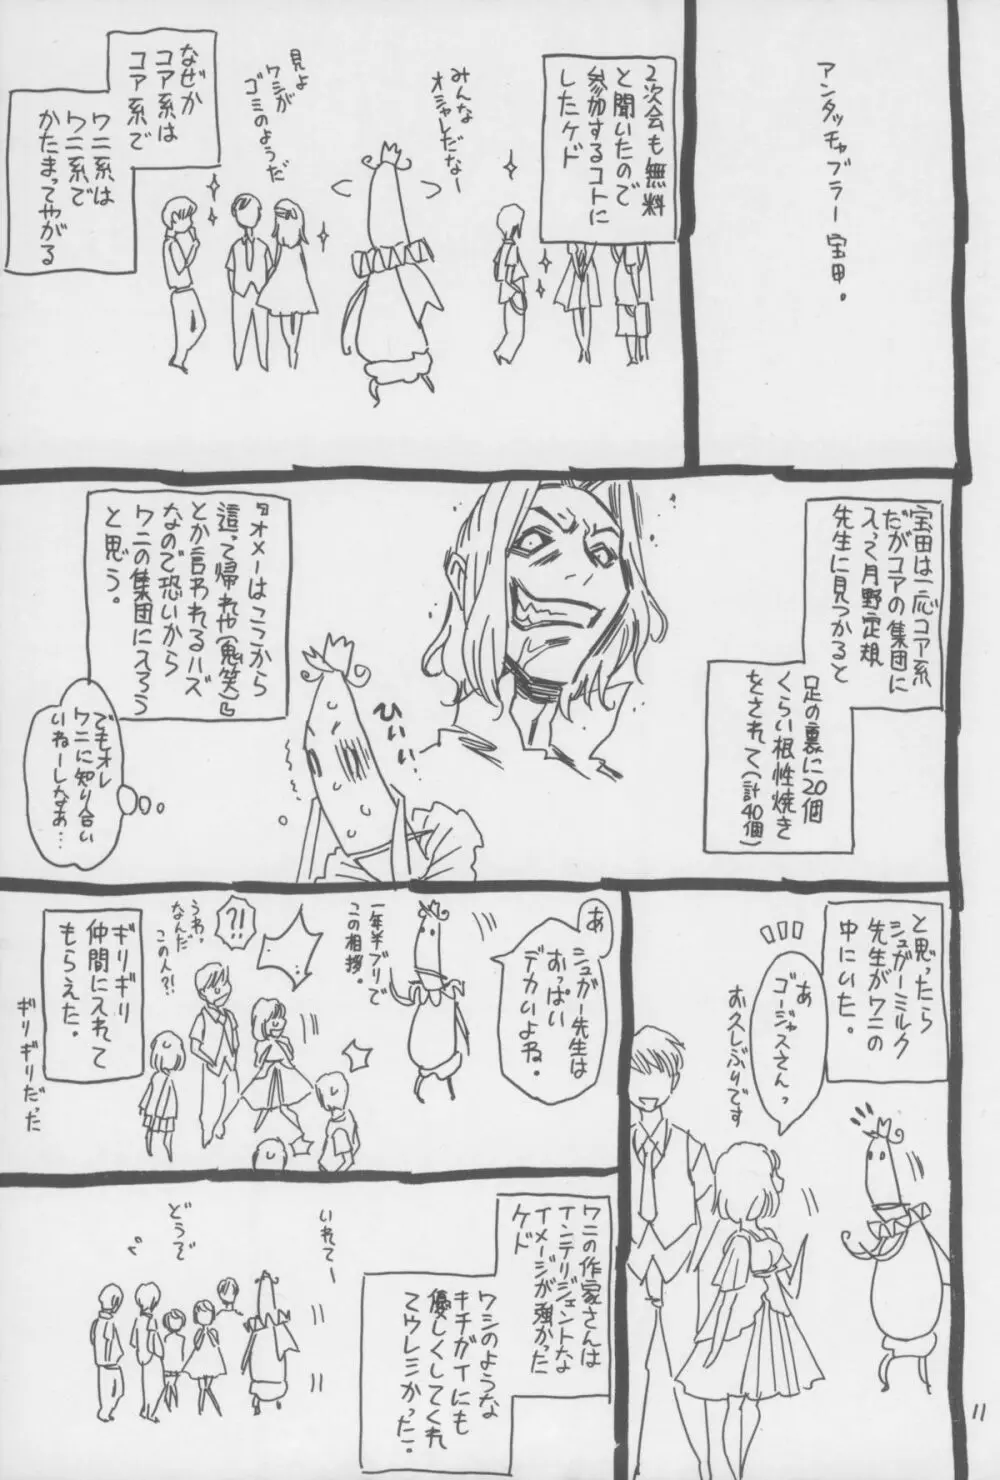 アンタッチャブラー宝田。
2次会も無料
と聞いたので
参加するコトに
したケド
みんな
オシャレだなー
見よ
ワシが
ゴミのようだ
なぜか
コア系は
コア系で
ワニ系は
ワニ系で
かたまってやがる
宝田は一応コア系
だがコアの集団に
入って月野定規
先生に見つかると
足の裏に20個
くらい根性焼き
をされて(計40個)
『オメーはここから
這って帰れや(鬼笑)』
とか言われるハズ
なので恐いから
ワニの集団に入ろう
と思う。
ひいぃ
でもオレ
ワニに知り合い
いねーしなぁ…
と思ったら
シュガーミルク
先生がワニの
中にいた。
あ
ゴージャスさんっ
お久しぶりです
あ
シュガー先生は
おっぱい
デカいよね。
一年半ブリで
この相撲。
?!
うわ、
なんだ
この人?!
ギリギリ
仲間に入れて
もらえた。
ギリギリだった
ワニの作家さんは
インテリジェントな
イメージが強かった
ケド
ワシのような
キチガイにも
優しくしてくれ
てウレシかった!
いれてー
どうぞ
11